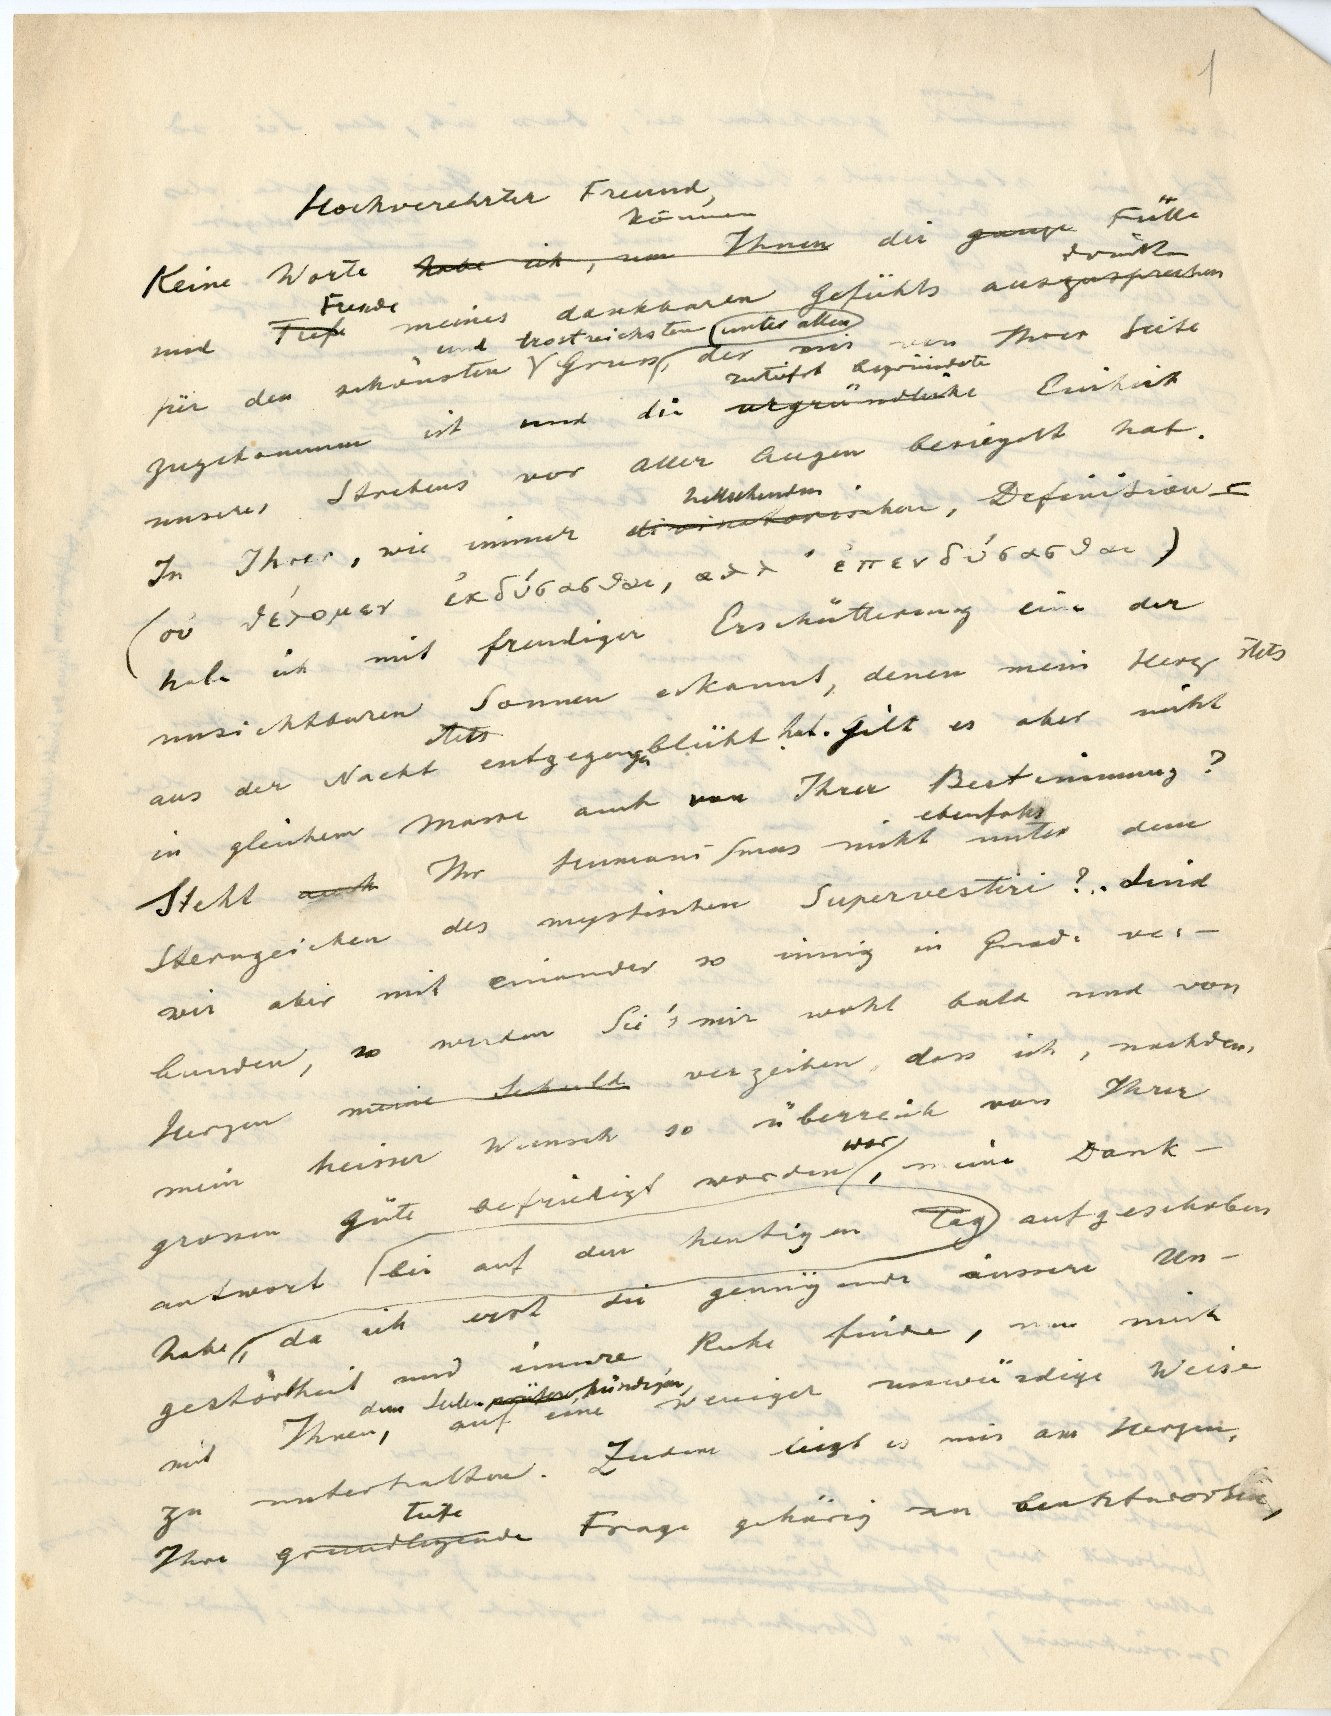 1
Hochverehrter Freund,
können
Keine Worte habe ich, um Ihnen die ganze Fülle
Freude drücken
und Tiefe meines dankbaren Gefühls auszusprechen
und trostreichsten (unter allen)
für den schönsten Gruss, der mir von Ihrer Seite
zutiefst begründete
zugekommen ist und die urgründliche Einheit
unseres Strebens vor aller Augen besiegelt hat.
hellsehenden
In Ihrer, wie immer divinatorischen, Definition
(οὐ θέλομεν ἐκδύσασθαι, αλλ' ἐπενδύσασθαι)
habe ich mit freudiger Erschütterung eine der
unsichtbaren Sonnen erkannt, denen mein Herz stets
stets
aus der Nacht entgegengeblüht hat. Gilt es aber nicht
in gleichem Masse auch von Ihrer Bestimmung?
ebenfalls
Steht auch Ihr Humanismus nicht unter dem
Sternzeichen des mystischen Supervestiri? Sind
wir aber mit einander so innig in Gnade ver-
bunden, so werden Sie's mir wohl bald und von
Herzen meine Schuld verzeihen, dass ich, nachdem
mein heisser Wunsch so überreich von Ihrer
war
grossen Güte befriedigt worden, meine Dank-
antwort (bis auf den heutigen Tag) aufgeschoben
habe, da ich erst die genügende äussere Un-
gestörtheit und innere Ruhe finde, um mich
dem Seelenkündiger,
mit Ihnen, auf eine weniger unwürdige Weise
zu unterhalten. Zudem liegt es mir am Herzen,
tiefe
Ihre grundlegende Frage gehörig zu beantworten,